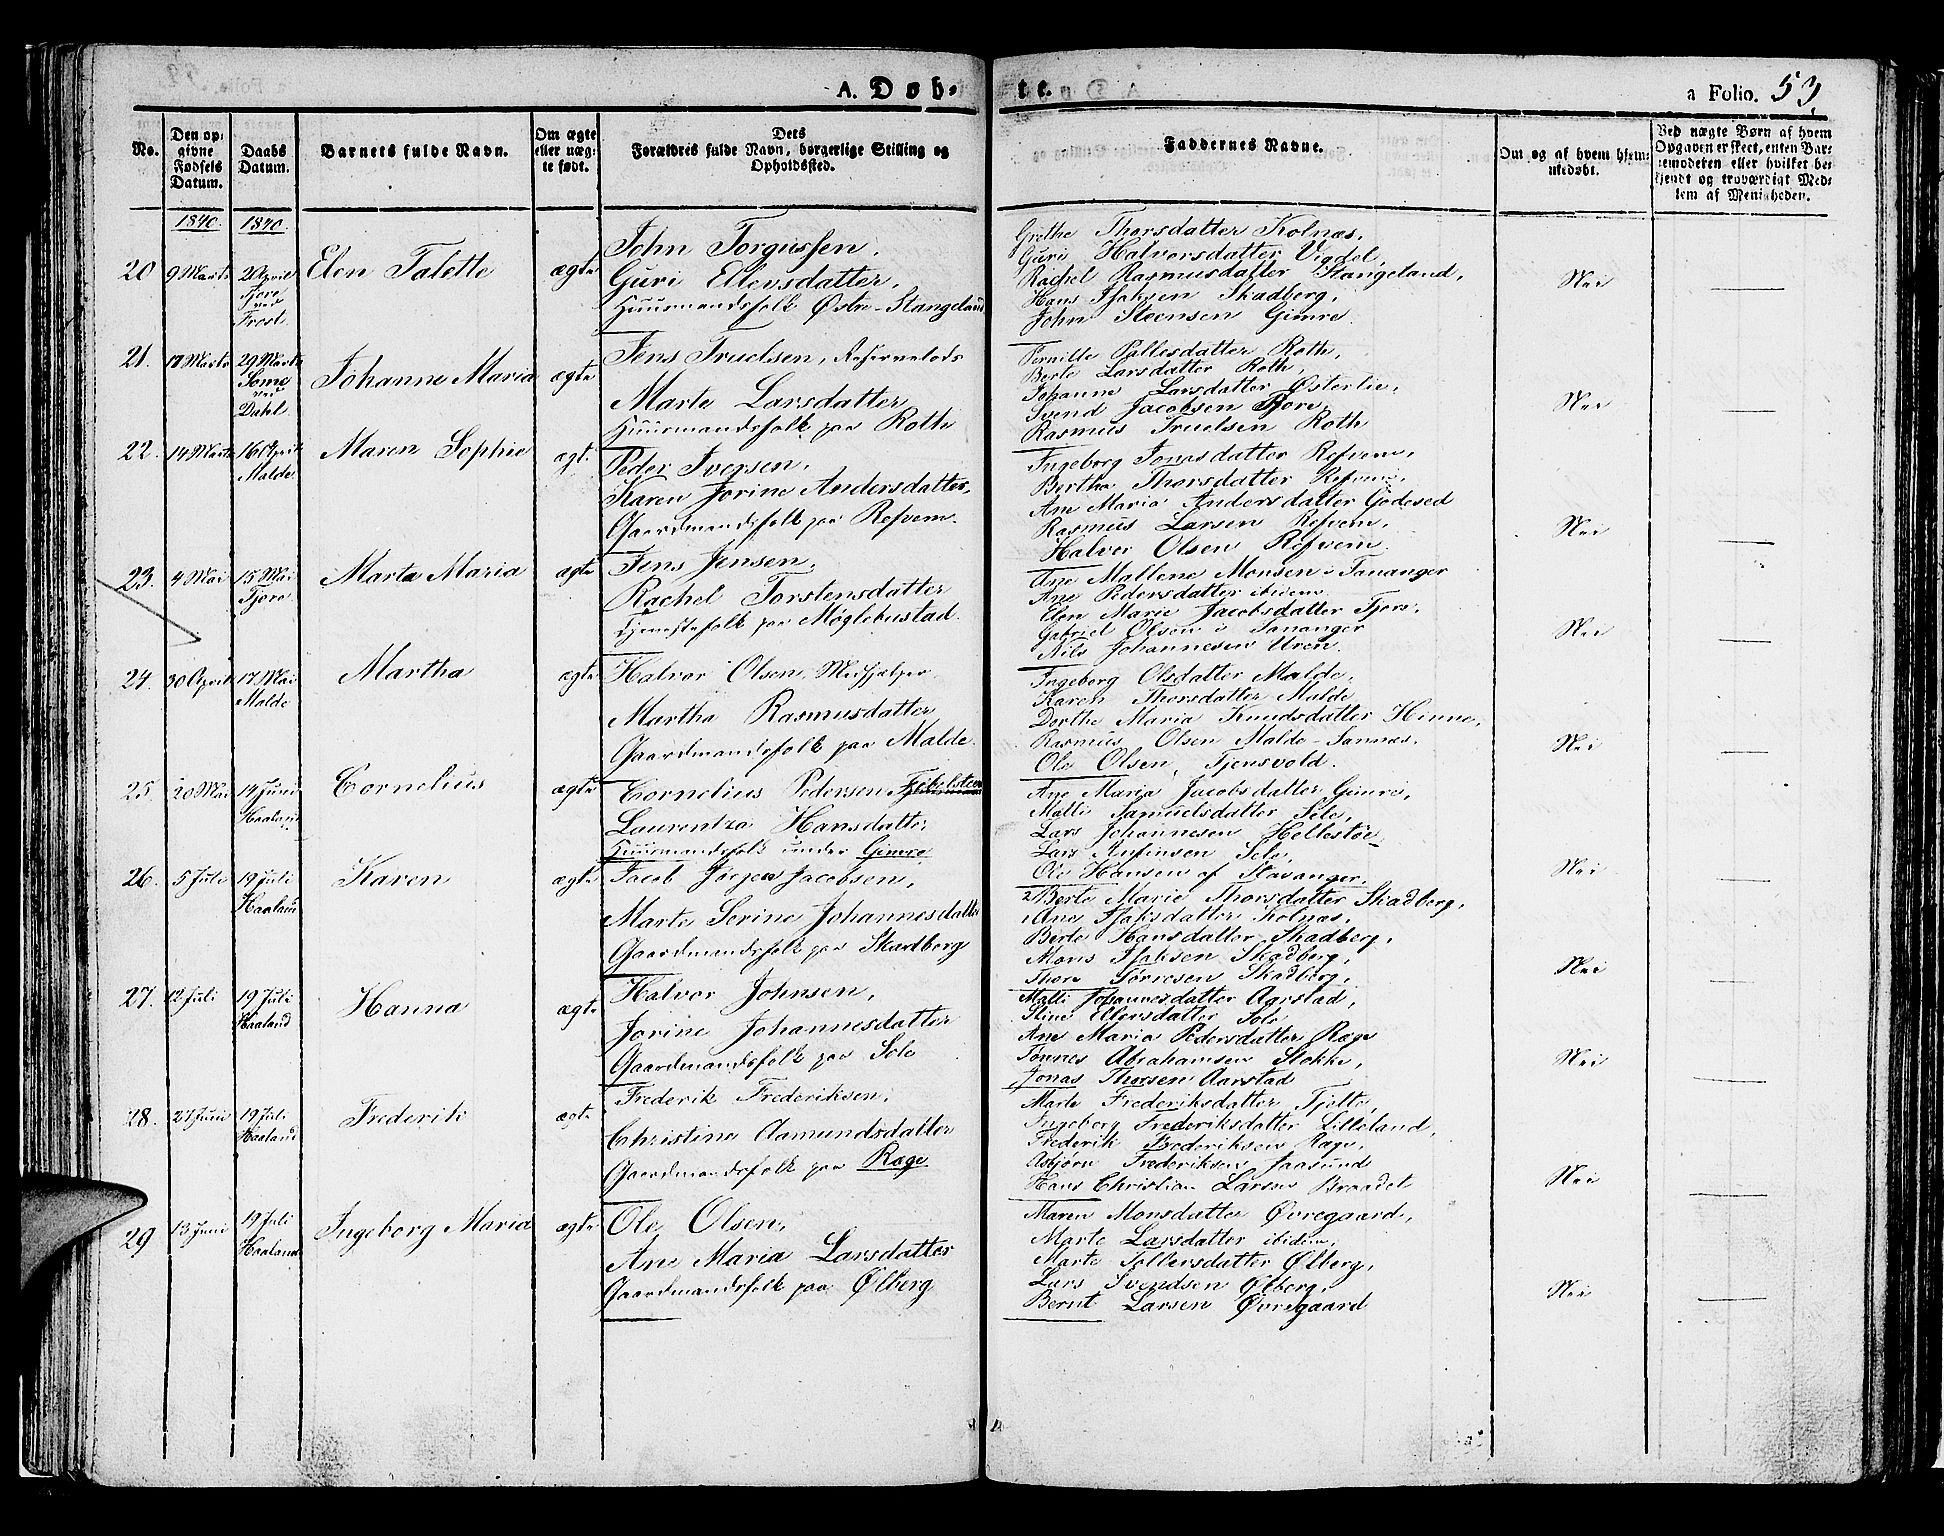 A. Døbte.
a Folio. 53
No.
Den opgivne Fødsels Datum.
Daabs Datum.
Barnets fulde Navn.
Om ægte eller uægte født.
Dets Forældres fulde Navn, borgerlige Stilling og Opholdssted.
Faddernes Navne.
Om og af hvem hjemmedøbt.
Ved uægte Børn af hvem Opgaven er skeet, enten Barnemoderen eller hvilket bekjendt og troværdigt Medlem af Menigheden.
1840. 1840.
20 9 Marts 20 April Tjora Elen Talette ægte
John Torgussen,
Guri Ellevsdatter,
Huusmandsfolk Østre-Stangeland
Grethe Thorsdatter Kolnæs,
Guri Halvorsdatter Vigdel,
Rachel Rasmusdatter Stangeland,
Hans Isaksen Skadberg,
John Steensen Gimre.
Nei
21. 17 Marts 29 Marts Some ved Dahl Johanne Maria ægte
Jens Truelsen,
Marte Larsdatter
Huusmandsfolk paa Roth
Pernille Pallesdatter Roth,
Berte Larsdatter Roth,
Johanne Larsdatter Østerlie,
Svend Jacobsen Tjore,
Rasmus Truelsen Roth
Nei
22. 14 Marts 16 April Malde Maren Sophie ægte
Peder Iversen,
Karen Jorine Andersdatter,
Gaardmandsfolk paa Refvem.
Ingeborg Jonasdatter Refvem,
Bertha Thorsdatter Refvem,
Ane Maria Andersdatter Godesed
Rasmus Larsen Refvem,
Halvor Olsen Refvem.
Nei
23. 4 Mai 15 Mai Tjora Marta Maria ægte
Jens Jensen,
Rachel Torstensdatter
Tjenestefolk paa Møglebustad.
Ane Mallene Monsen i Tananger
Ane Pedersdatter ibidem.
Elen Marie Jacobsdatter Tjore,
Gabriel Olsen i Tananger
Nils Johannesen Uren.
Nei
24. 30 April 17 Mai Malde Martha ægte
Halvor Olsen, Medhjelper
Martha Rasmusdatter
Gaardmandsfolk paa Malde.
Ingeborg Olsdatter Malde,
Karen Thorsdatter Malde
Dorthe Maria Knudsdatter Hinne,
Rasmus Olsen Malde-Sannæs,
Ole Olsen, Tjensvold.
Nei
25. 20 Mai 14 Juni Haaland Cornelius ægte
Cornelius Pedersen
Laurentza Hansdatter
Huusmandsfolk under Gimre
Ane Maria Jacobsdatter Gimre,
Malli Samuelsdatter Sole,
Lars Johannesen Hellestøe
Lars Anfinsen Sole,
Ole Hansen af Stavanger.
Nei
26. 5 Juli 19 Juli Haaland Karen ægte
Jacob Jørgen Jacobsen,
Marte Serine Johannesdatter
Gaardmandsfolk paa Skadberg
2 Berte Marie Thorsdatter Skadberg,
1 Ane Isaksdatter Kolnæs,
Berte Hansdatter Skadberg,
Mons Isaksen Skadberg,
Thore Tørresen Skadberg,
Nei
27. 12 Juli 19 Juli Haaland Hanna ægte
Halvor Johnsen,
Jorine Johannesdatter
Gaardmandsfolk paa Sole
Malli Johannesdatter Aarstad,
Stine Ellersdatter Sole
Ane Maria Pedersdatter Ræge
Tønnes Abrahamsen Stokke,
Jonas Thorsen Aarstad
Nei
28. 27 Juni 19 Juli Haaland Frederik ægte
Frederik Frederiksen,
Christine Aamundsdatter
Gaardmandsfolk paa Ræge
Marte Frederiksdatter Tjelte,
Ingeborg Frederiksdatter Litleland,
Frederik Frederiksen Ræge,
Asbjørn Frederiksen Jaasund
Hans Christian Larsen Braadet
Nei
29 13 Juni 19 Juli Haaland Ingeborg Maria ægte
Ole Olsen,
Ane Maria Larsdatter
Gaardmandsfolk paa Ølberg
Maren Monsdatter Øvregaard,
Marte Larsdatter ibidem,
Marte Tollersdatter Ølberg,
Lars Svendsen Ølberg,
Bernt Larsen Øvregaard
Nei